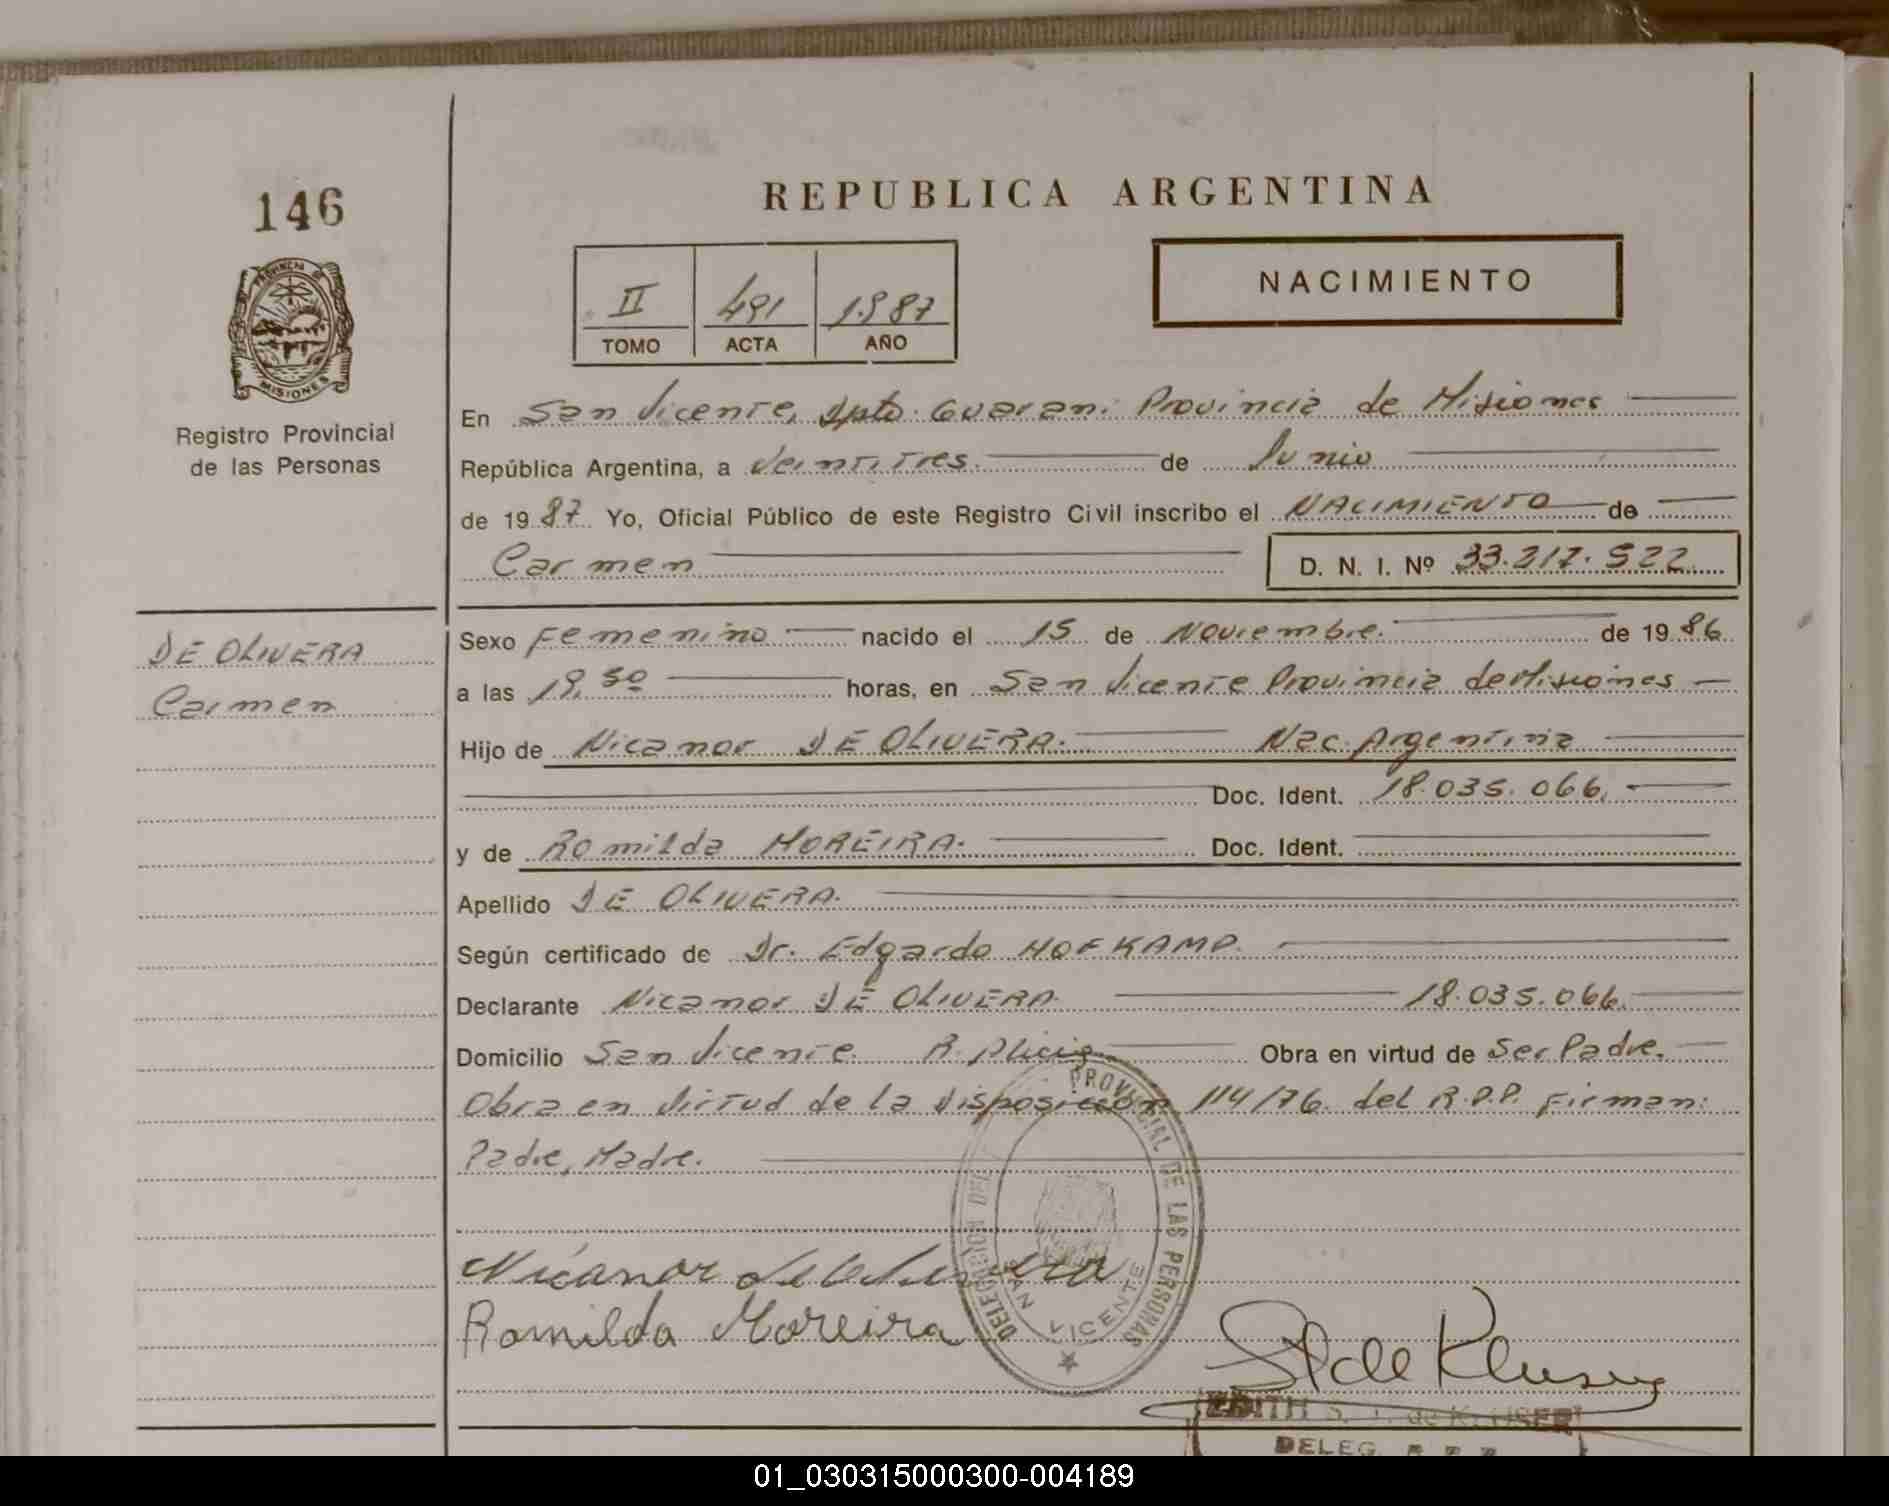 146
REPUBLICA ARGENTINA
NACIMIENTO
II 491 1987
TOMO ACTA AÑO
PROVINCIA DE
MISIONES
Registro Provincial
de las Personas
En San Vicente, Dpto. Guarani Provincia de Misiones
República Argentina, a Veintitres. de Junio
de 19 87 Yo, Oficial Público de este Registro Civil inscribo el NACIMIENTO de
Carmen D. N. I. Nº 33.217.522
DE OLIVERA
Carmen
Sexo Femenino nacido el 15 de Noviembre. de 19 86
a las 19,50 horas, en San Vicente Provincia de Misiones
Hijo de Nicanor DE OLIVERA. Nac. Argentina
Doc. Ident. 18.035.066.
y de Romilda MOREIRA. Doc. Ident.
Apellido DE OLIVERA.
Según certificado de Dr. Edgardo HOFKAMP.
Declarante Nicanor DE OLIVERA. 18.035.066.
Domicilio San Vicente. B. Alicia Obra en virtud de Ser Padre.
Obra en Virtud de la Disposicion 114/76. del R.P.P. Firman:
Padre, Madre.
DELEGACION DEL PROVINCIAL DE LAS PERSONAS
SAN VICENTE
Nicanor de Olivera
Romilda Moreira
S de Kluser
EDITH S. de KLUSER
DELEG.
01_030315000300-004189